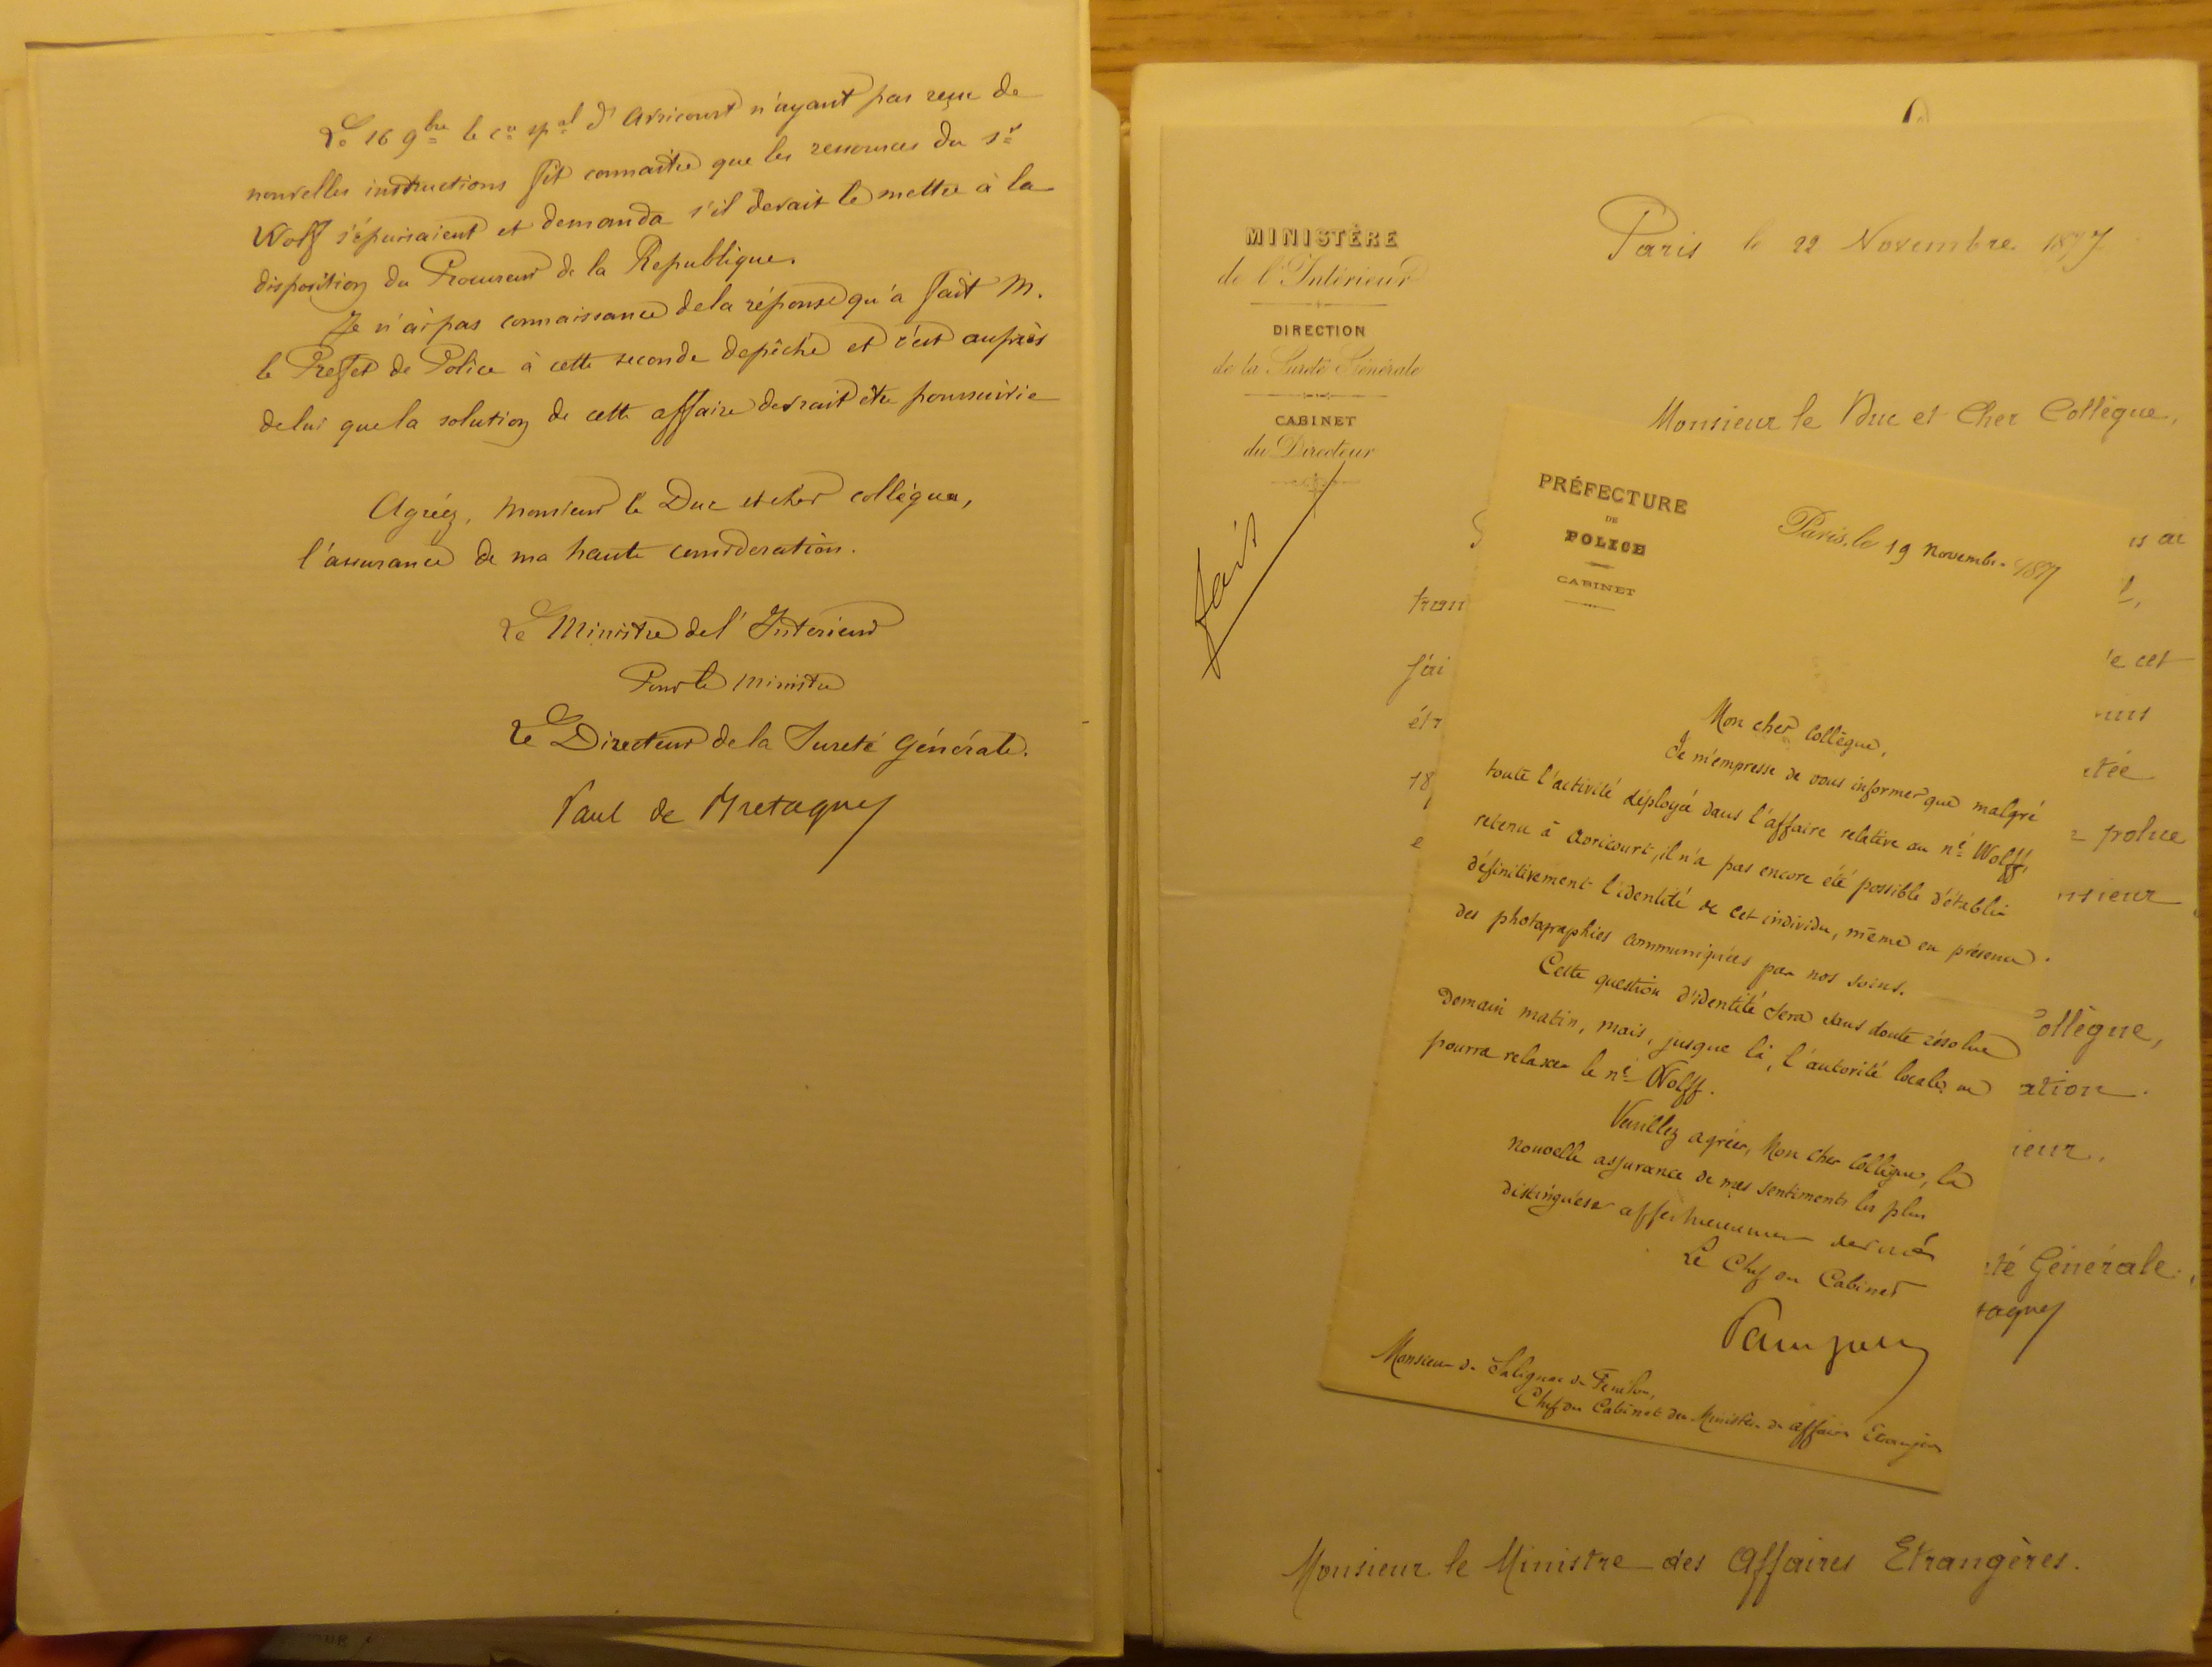 Le 16 9bre le cre spal d'Avricourt n'ayant pas reçu de
nouvelles instructions fit connaitre que les ressources du sr
Wolf s'épuisaient et demanda s'il devait le mettre à la
disposition du Procureur de la Republique.
Je n'ai pas connaissance de la réponse qu'a fait M.
le Prefet de Police à cette seconde depêche et c'est auprès
de lui que la solution de cette affaire devrait être poursuivie
Agréez, Monsieur le Duc et cher collègue,
l'assurance de ma haute consideration.
Le Ministre de l'Interieur
Pour le Ministre
Le Directeur de la Sureté Générale.
Paul de Bretagne
MINISTÈRE
de l'Intérieur
DIRECTION
de la Sureté Générale
CABINET
du Directeur
fait
Paris le 22 Novembre 1877
Monsieur le Duc et Cher Collègue,
j'ai
18
e cet
police
nsieur
ollègue,
ation.
ieur.
té Générale.
tagne
Monsieur le Ministre des Affaires Etrangères.
PRÉFECTURE
DE
POLICE
CABINET
Paris, le 19 novembre 1877
Mon cher Collègue,
Je m'empresse de vous informer que malgré
toute l'activité déployée dans l'affaire relative au né Wolff,
retenu à Avricourt, il n'a pas encore été possible d'établir
définitivement l'identité de cet individu, même en présence
des photographies communiquées par nos soins.
Cette question d'identité sera sans doute résolue
Demain matin, mais, jusque là, l'autorité locale ne
pourra relaxer le né Wolff.
Veuillez agréer, Mon cher Collègue, la
nouvelle assurance de mes sentiments les plus
distingués et affectueusement dévoués
Le Chef du Cabinet
Monsieur de Salignac de Fenelon,
Chef du Cabinet du Ministère des affaires Etrangères